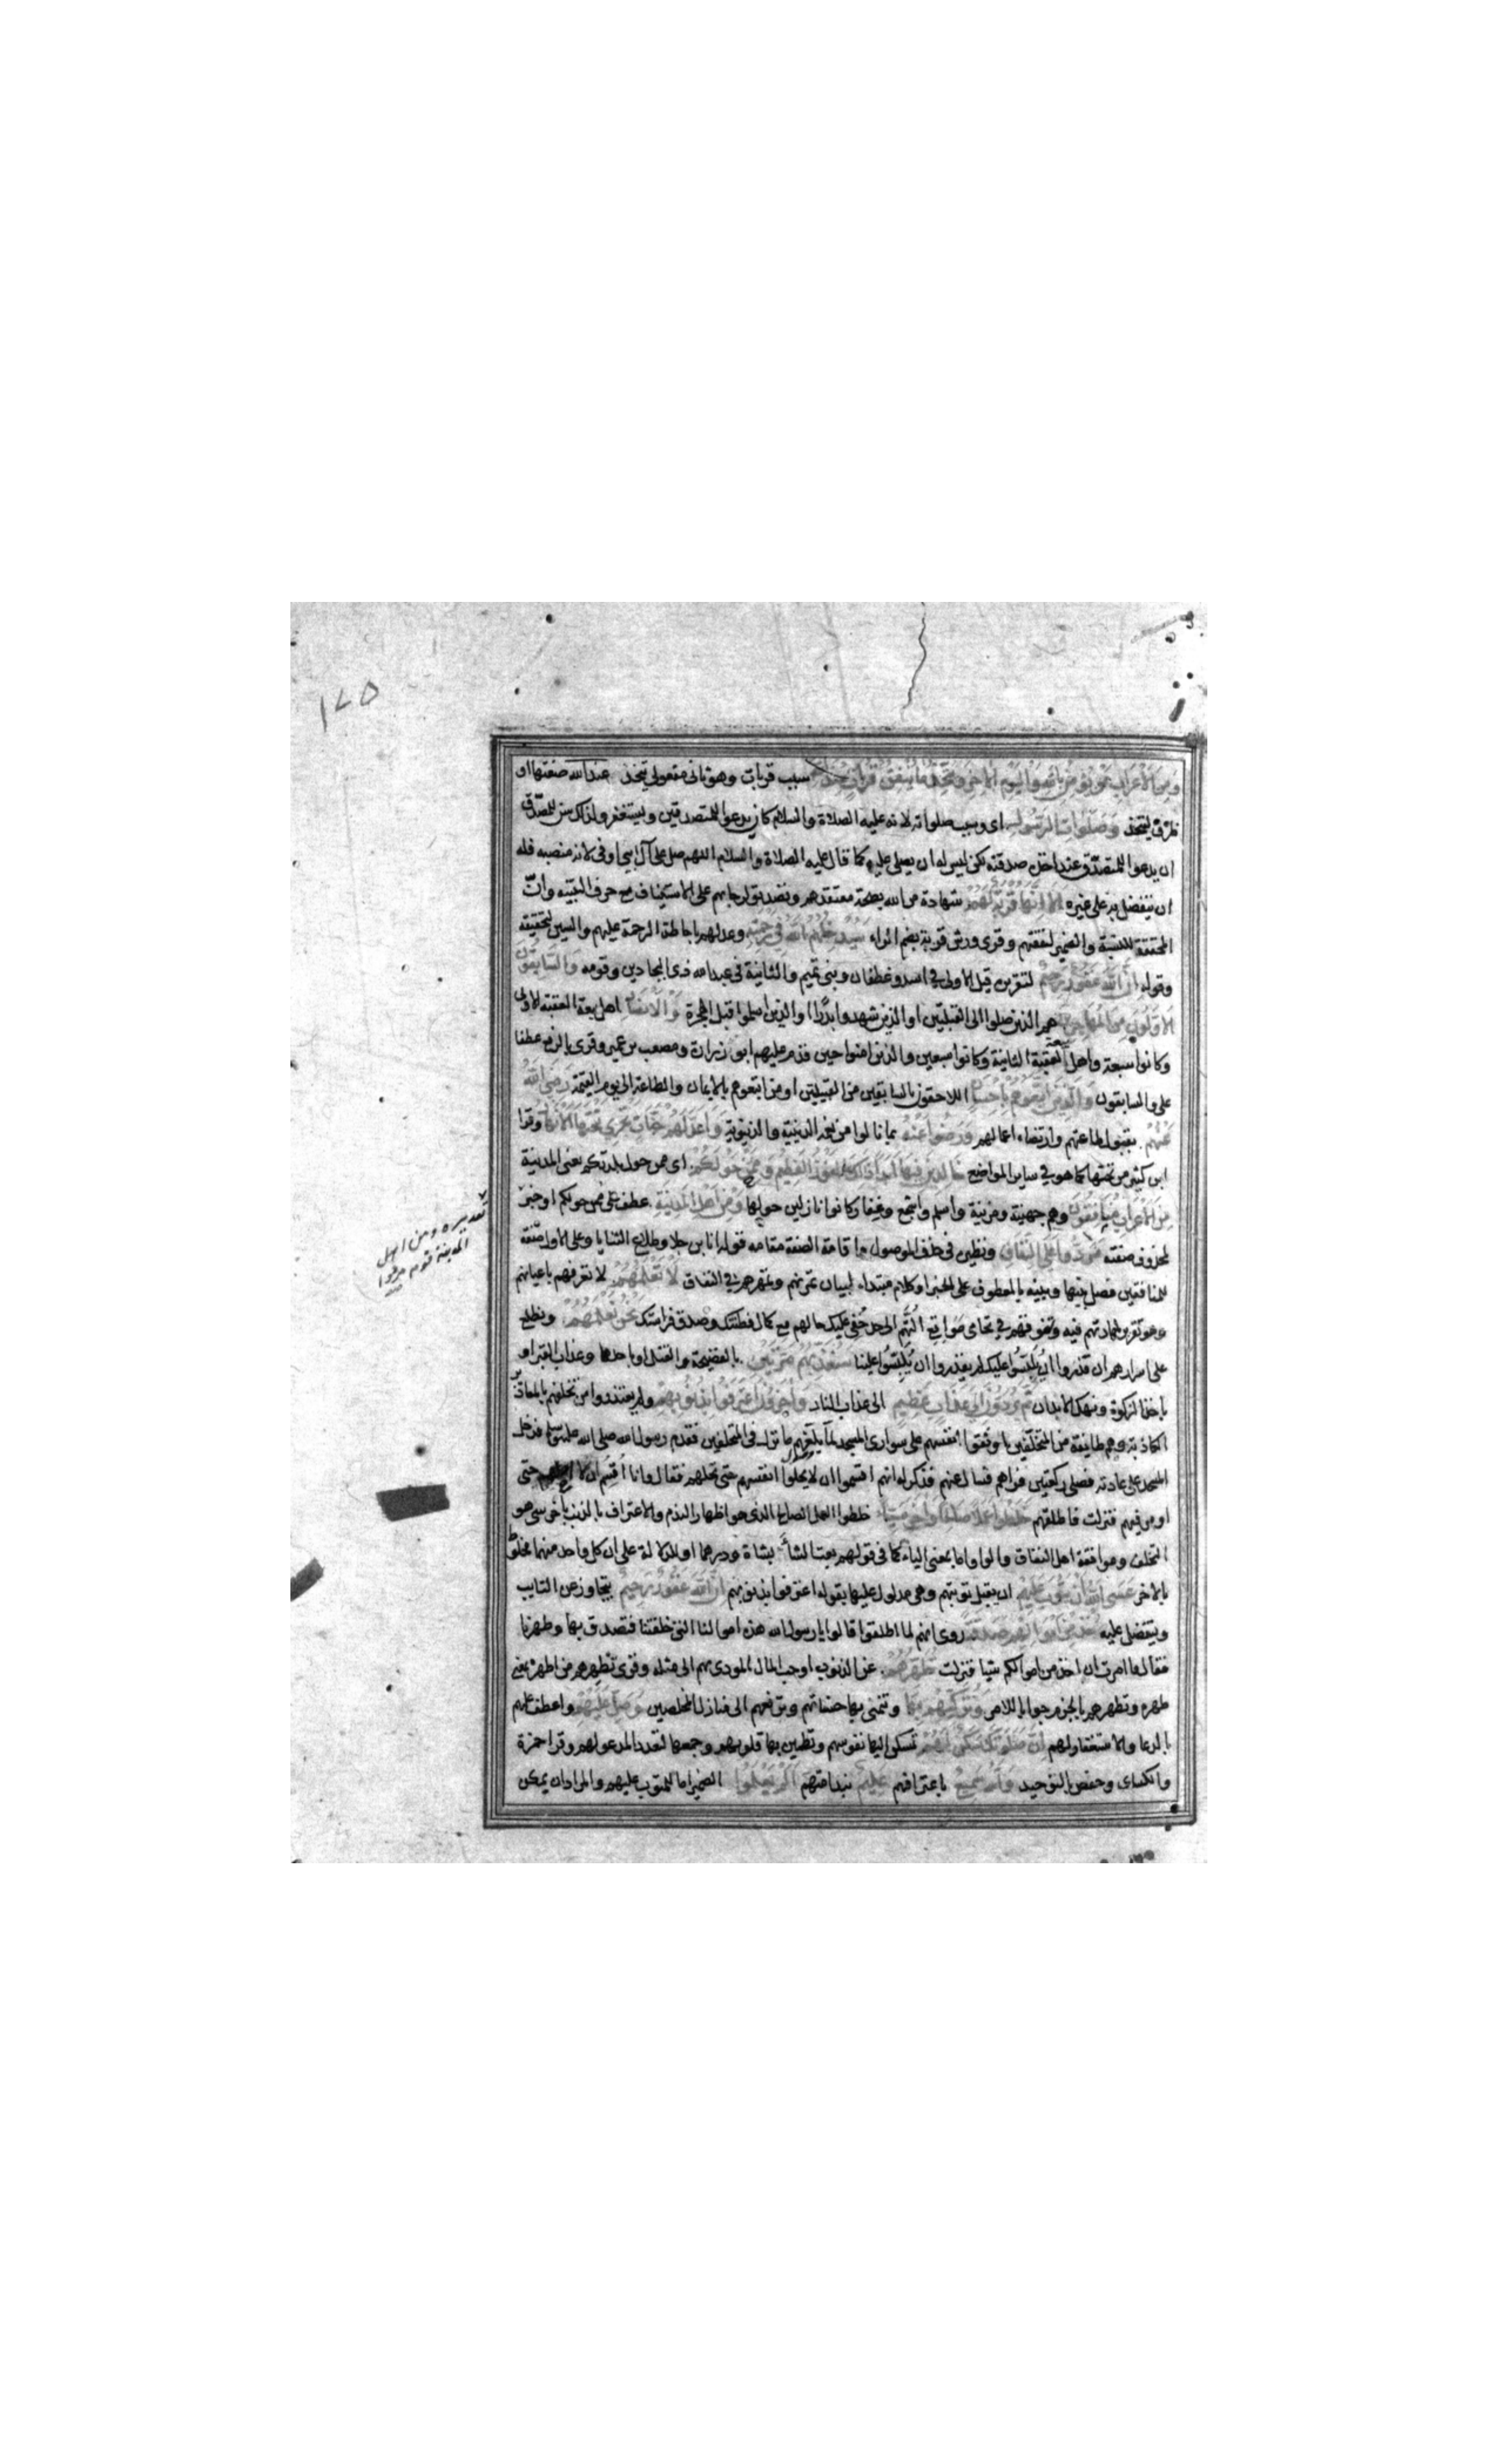 ١٧٥
وَمِنَ الْأَعْرَابِ مَنْ يُؤْمِنُ بِاللَّهِ وَالْيَوْمِ الْآخِرِ وَيَتَّخِذُ مَا يُنْفِقُ قُرُبَاتٍ عِنْدَ اللَّهِ سبب قربات وهو ثاني مفعولي يتخذ عند الله صفتها او
ظرف ليتخذ وَصَلَوَاتِ الرَّسُولِ اى وسبب صلواته لانه عليه الصلاة والسلام كان يدعوا للمتصدقين ويستغفر ولذلك سن للمصدق
ان يدعوا للمتصدق عند اخذ صدقته لكن ليس له ان يصلى عليه كما قال عليه الصلاة والسلام اللهم صل على آل ابى اوفى لانه منصبه فله
ان يتفضل به على غيره أَلَا إِنَّهَا قُرْبَةٌ لَهُمْ شهادة من الله بصحة معتقدهم وتصديق لرجائهم على الاستيناف مع حرف التنبيه وانّ
المحققة للنسبة والضمير لنفقتهم وقرى ورش قربة بضم الراء سَيُدْخِلُهُمُ اللَّهُ فِي رَحْمَتِهِ وعد لهم باحاطة الرحمة عليهم والسين لتحقيقه
وقوله إِنَّ اللَّهَ غَفُورٌ رَحِيمٌ لتقريره قيل الاولى في اسد وغطفان وبنى تميم والثانية فى عبد الله ذى البجادين وقومه وَالسَّابِقُونَ
الْأَوَّلُونَ مِنَ الْمُهَاجِرِينَ هم الذين صلوا الى القبلتين او الذين شهدوا بدرًا او الذين اسلموا قبل الهجرة وَالْأَنْصَارِ اهل بيعة العقبة الاولى
وكانوا سبعة واهل بيعة العقبة الثانية وكانوا سبعين والذين امنوا حين قدم عليهم ابو زرارة ومصعب بن عمير وقرى بالرفع عطفا
على والسابقون وَالَّذِينَ اتَّبَعُوهُمْ بِإِحْسَانٍ اللاحقون بالسابقين من القبيلتين او من اتبعوهم بالايمان والطاعة الى يوم القيمة رَضِيَ اللَّهُ
عَنْهُمْ بقبول طاعتهم وارتضاء اعمالهم وَرَضُوا عَنْهُ بما نالوا من نعمه الدينية والدنيوية وَأَعَدَّ لَهُمْ جَنَّاتٍ تَجْرِي تَحْتَهَا الْأَنْهَارُ وقرا
ابن كثير من تحتها كما هو في ساير المواضع خَالِدِينَ فِيهَا أَبَدًا ذَلِكَ الْفَوْزُ الْعَظِيمُ وَمِمَّنْ حَوْلَكُمْ اى ممن حول بلدتكم يعنى المدينة
مِنَ الْأَعْرَابِ مُنَافِقُونَ وهم جهينة ومزينة واسلم واشجع وغفار كانوا نازلين حولها وَمِنْ أَهْلِ الْمَدِينَةِ عطف على ممن حولكم او خبر
لمحذوف صفته مَرَدُوا عَلَى النِّفَاقِ ونظيره فى حذف الموصول واقامة الصفة مقامه قوله انا بن جلا وطلاع الثنايا وعلى الاول صفة
للمنافقين فصل بينها وبينه بالمعطوف على الخبر او كلام مبتداء لبيان تمرنهم وتمهرهم في النفاق لَا تَعْلَمُهُمْ لا تعرفهم باعيانهم
وهو تقرير لمهارتهم فيه وتنوقهم في تحامى مواقع التهم الى حد خفى عليك حالهم مع كمال فطنتك وصدق فراستك نَحْنُ نَعْلَمُهُمْ ونطلع
على اسرارهم ان قدروا ان يلبسوا عليك لم يقدروا ان يلبسوا علينا سَنُعَذِّبُهُمْ مَرَّتَيْنِ بالفضيحة والقتل او باحدهما وعذاب القبر او
باخذ الزكوة ونهك الابدان ثُمَّ يُرَدُّونَ إِلَى عَذَابٍ عَظِيمٍ الى عذاب النار وَآخَرُونَ اعْتَرَفُوا بِذُنُوبِهِمْ ولم يعتذروا من تخلفهم بالمعاذير
الكاذبة وهم طايفة من المتخلفين اوثقوا انفسهم على سوارى المسجد لما بلغهم ما نزل فى المتخلفين فقدم رسول الله صلى الله عليه وسلم فدخل
المسجد على عادته فصلى ركعتين فراهم فسال عنهم فذكر له انهم اقسموا ان لا يحلوا انفسهم حتى تحلهم فقال وانا اقسم ان لا حتى
اومر فيهم فنزلت فاطلقهم خَلَطُوا عَمَلًا صَالِحًا وَآخَرَ سَيِّئًا خلطوا العمل الصالح الذى هو اظهار الندم والاعتراف بالذنب بآخر سى هو
التخلف وموافقة اهل النفاق والواو اما بمعنى الباء كما فى قولهم بعت الشاء بشاة ودرهما او للدلالة على ان كل واحد منهما مخلوط
بالاخر عَسَى اللَّهُ أَنْ يَتُوبَ عَلَيْهِمْ ان يقبل توبتهم وهى مدلول عليها بقوله اعترفوا بذنوبهم إِنَّ اللَّهَ غَفُورٌ رَحِيمٌ يتجاوز عن التايب
ويتفضل عليه خُذْ مِنْ أَمْوَالِهِمْ صَدَقَةً روى انهم لما اطلقوا قالوا يا رسول الله هذه اموالنا التى خلفتنا فتصدق بها وطهرنا
فقال ما امرت ان اخذ من اموالكم شيا فنزلت تُطَهِّرُهُمْ عن الذنوب او حب المال المودى بهم الى مثله وقرى تطهرهم من اطهره بمعنى
طهره وتطهرهم بالجزم جوابا للامر وَتُزَكِّيهِمْ بِهَا وتنمى بها حسناتهم وترفعهم الى منازل المخلصين وَصَلِّ عَلَيْهِمْ واعطف عليهم
بالدعا والاستغفار لهم إِنَّ صَلَوتَكَ سَكَنٌ لَهُمْ تسكن اليها نفوسهم وتطمين بها قلوبهم وجمعها لتعدد المدعو لهم وقرا حمزة
والكساى وحفص بالتوحيد وَاللَّهُ سَمِيعٌ باعترافهم عَلِيمٌ بندامتهم أَلَمْ يَعْلَمُوا الضمير اما للمتوب عليهم والمراد ان يمكن
تقديره ومن اهل
المدينة قوم مردوا